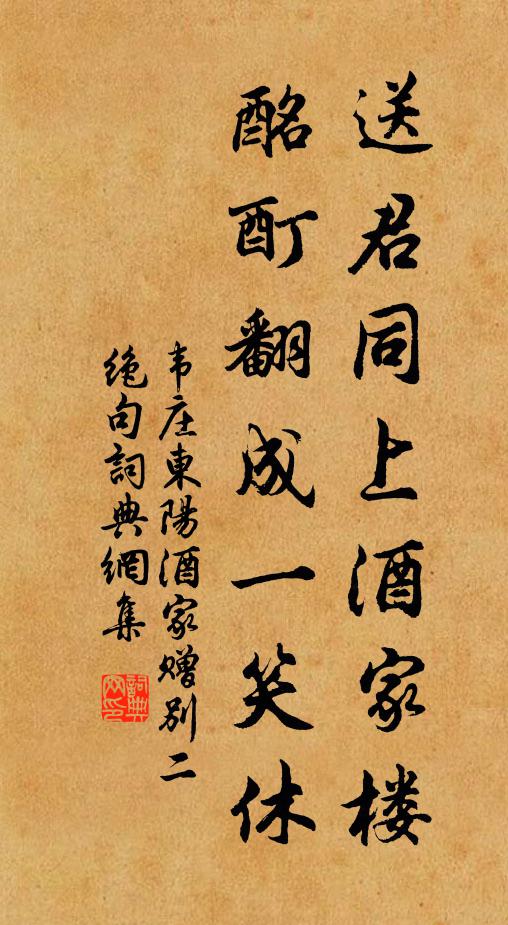 送君同上酒家楼
酩酊翻成一笑休
韦庄東陽酒家赠别二
绝句詞典網集
詞典網印